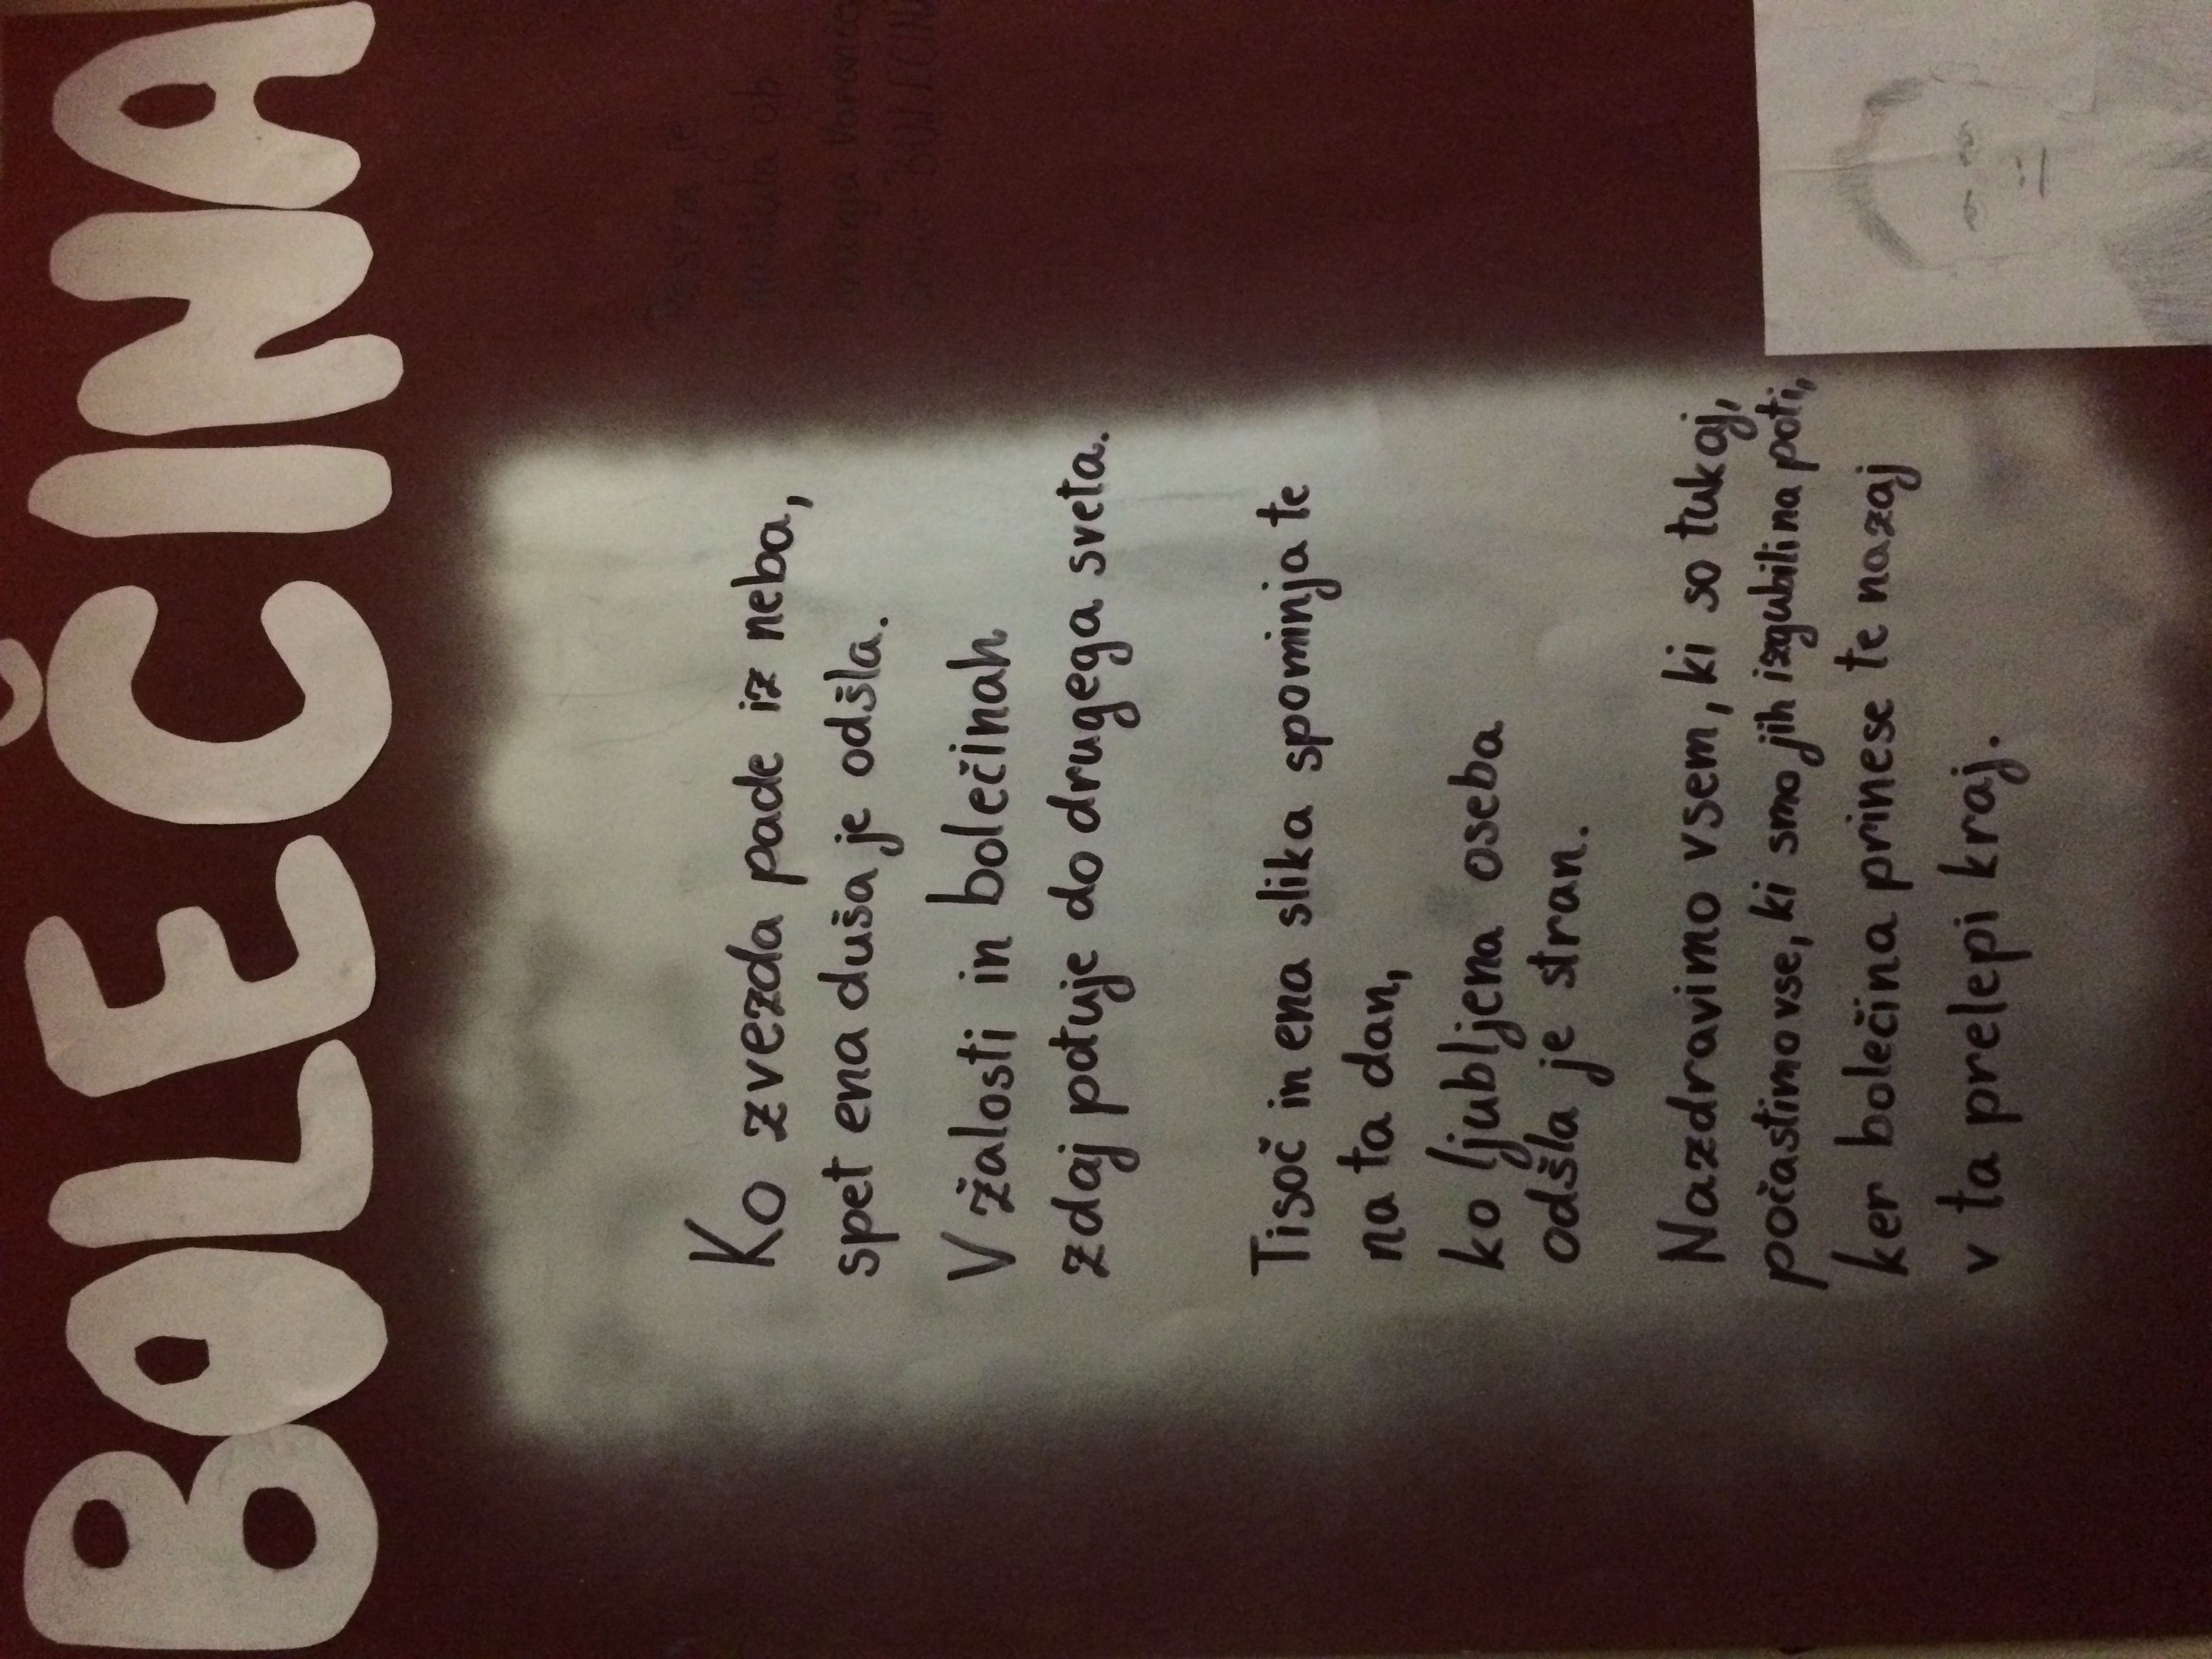 BOLEČINA
Ko zvezda pade iz neba,
spet ena duša je odšla.
V žalosti in bolečinah
zdaj potuje do drugega sveta.
Tisoč in ena slika spominja te
na ta dan,
ko ljubljena oseba
odšla je stran.
Nazdravimo vsem, ki so tukaj,
počastimo vse, ki smo jih izgubili na poti,
ker bolečina prinese te nazaj
v ta prelepi kraj.